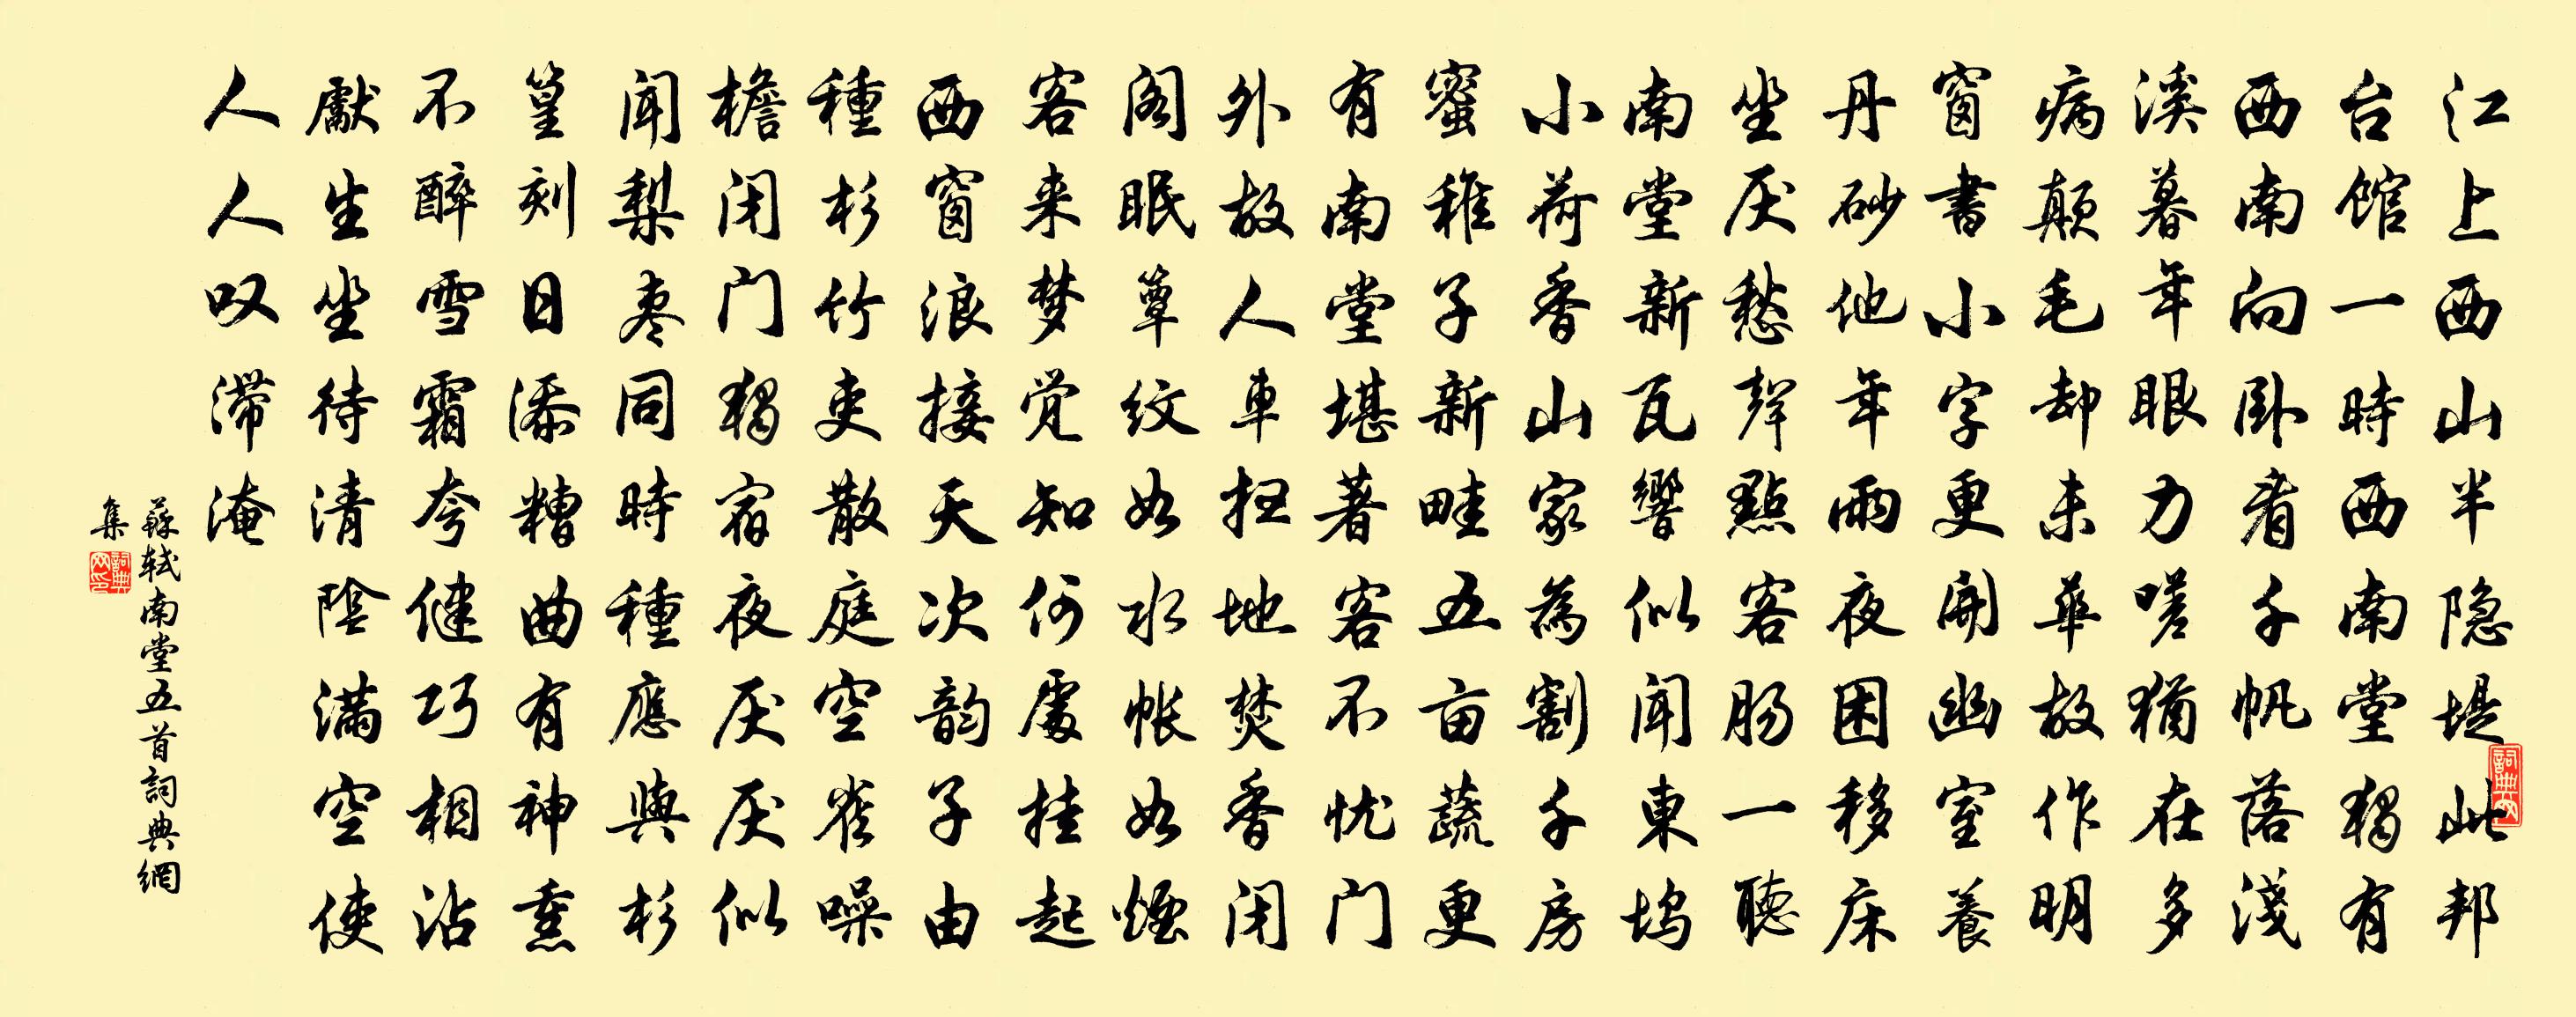 江上西山半隐堤此邦
台馆一時西南堂獨有
西南向卧看千帆落淺
溪暮年眼力嗟猶在多
病颠毛却未華故作明
窗書小字更開幽室養
丹砂他年雨夜困移床
坐厌愁聲點客肠一聽
南堂新瓦響似闻東塢
小荷香山家為割千房
蜜稚子新畦五亩蔬更
有南堂堪著客不忧门
外故人車扫地焚香闭
阁眠簟纹如水帐如煙
客来梦觉知何處挂起
西窗浪接天次韵子由
種杉竹吏散庭空雀噪
檐闭门獨宿夜厌厌似
闻梨枣同時種應與杉
篁刻日添糟曲有神熏
不醉雪霜夸健巧相沾
獻生坐待清陰满空使
人人叹滞淹
蘇軾南堂五首詞典網
集
詞典网印
詞典网